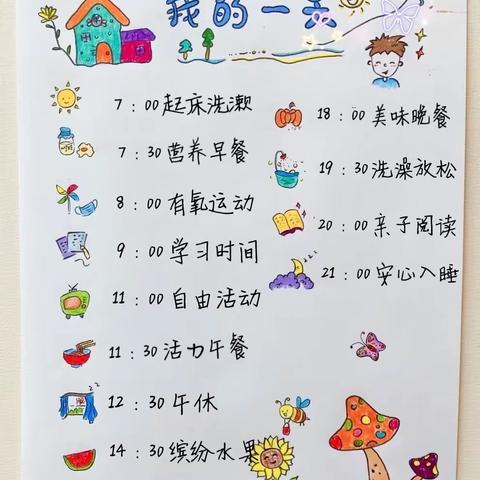 我的一天
7：00起床洗漱
7：30营养早餐
8：00有氧运动
9：00学习时间
11：00自由活动
11：30活力午餐
12：30午休
14：30缤纷水果
18：00美味晚餐
19：30洗澡放松
20：00亲子阅读
21：00安心入睡